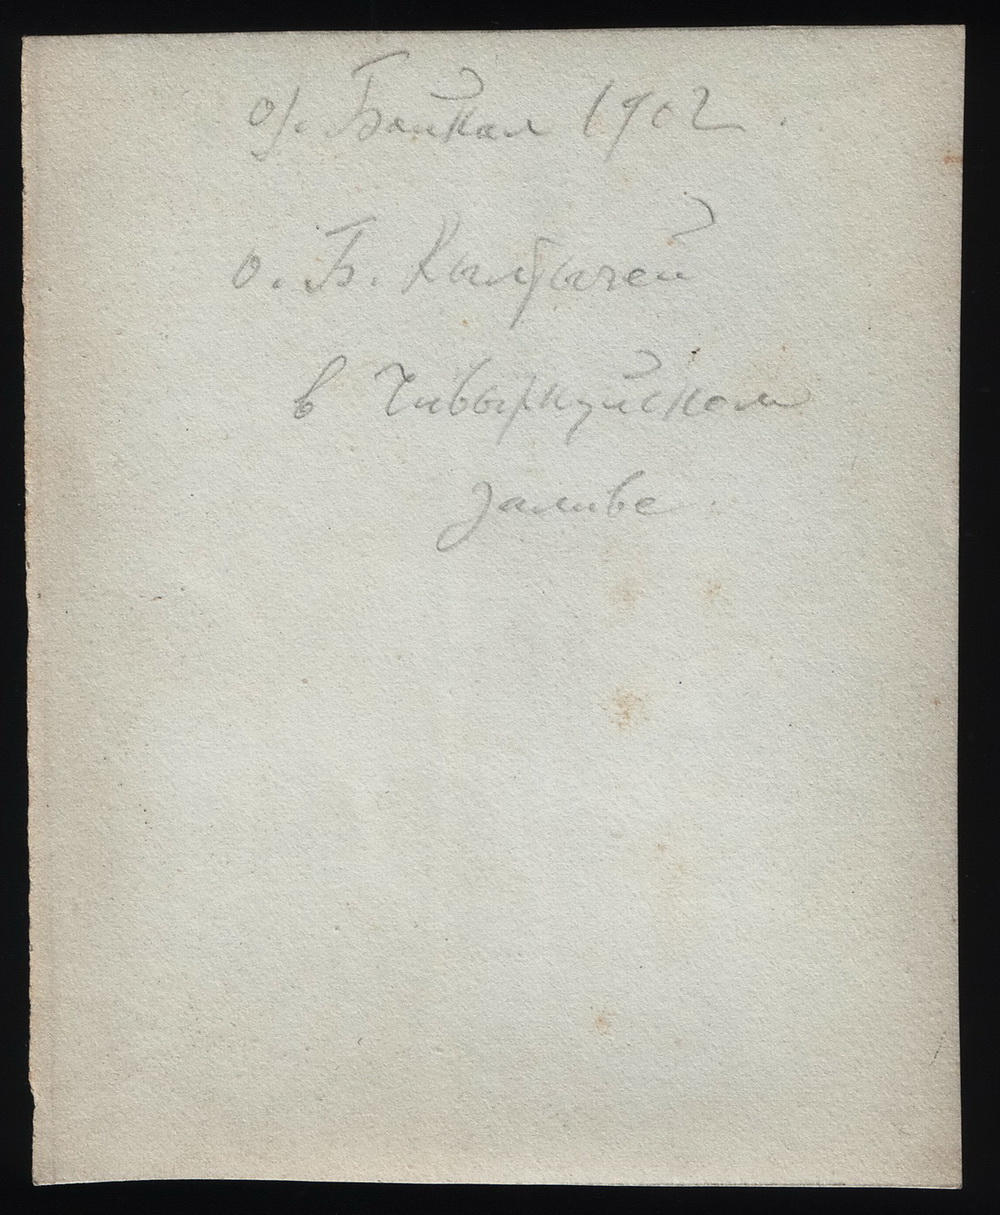 оз. Байкал 1902.
о. Б. Кылтыгей
в Чивыркуйском
заливе.